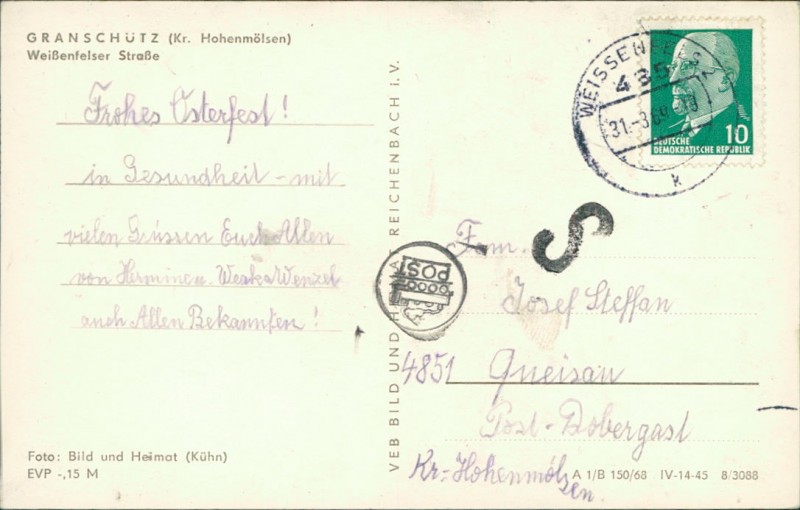 GRANSCHÜTZ (Kr. Hohenmölsen)
Weißenfelser Straße
Frohes Osterfest!
in Gesundheit - mit
vielen Grüssen Euch Allen
von Hermine u. Wenzel
auch Allen Bekannten!
Foto: Bild und Heimat (Kühn)
EVP -,15 M
VEB BILD UND HEIMAT REICHENBACH i. V.
WEISSENFELS 2
485
31.-3.69-18
k
10
DEUTSCHE
DEMOKRATISCHE REPUBLIK
S
POST
Fam.
Josef Steffan
4851 Queisau
Post-Dobergast
Kr.-Hohenmölsen.
A 1/B 150/68 IV-14-45 8/3088